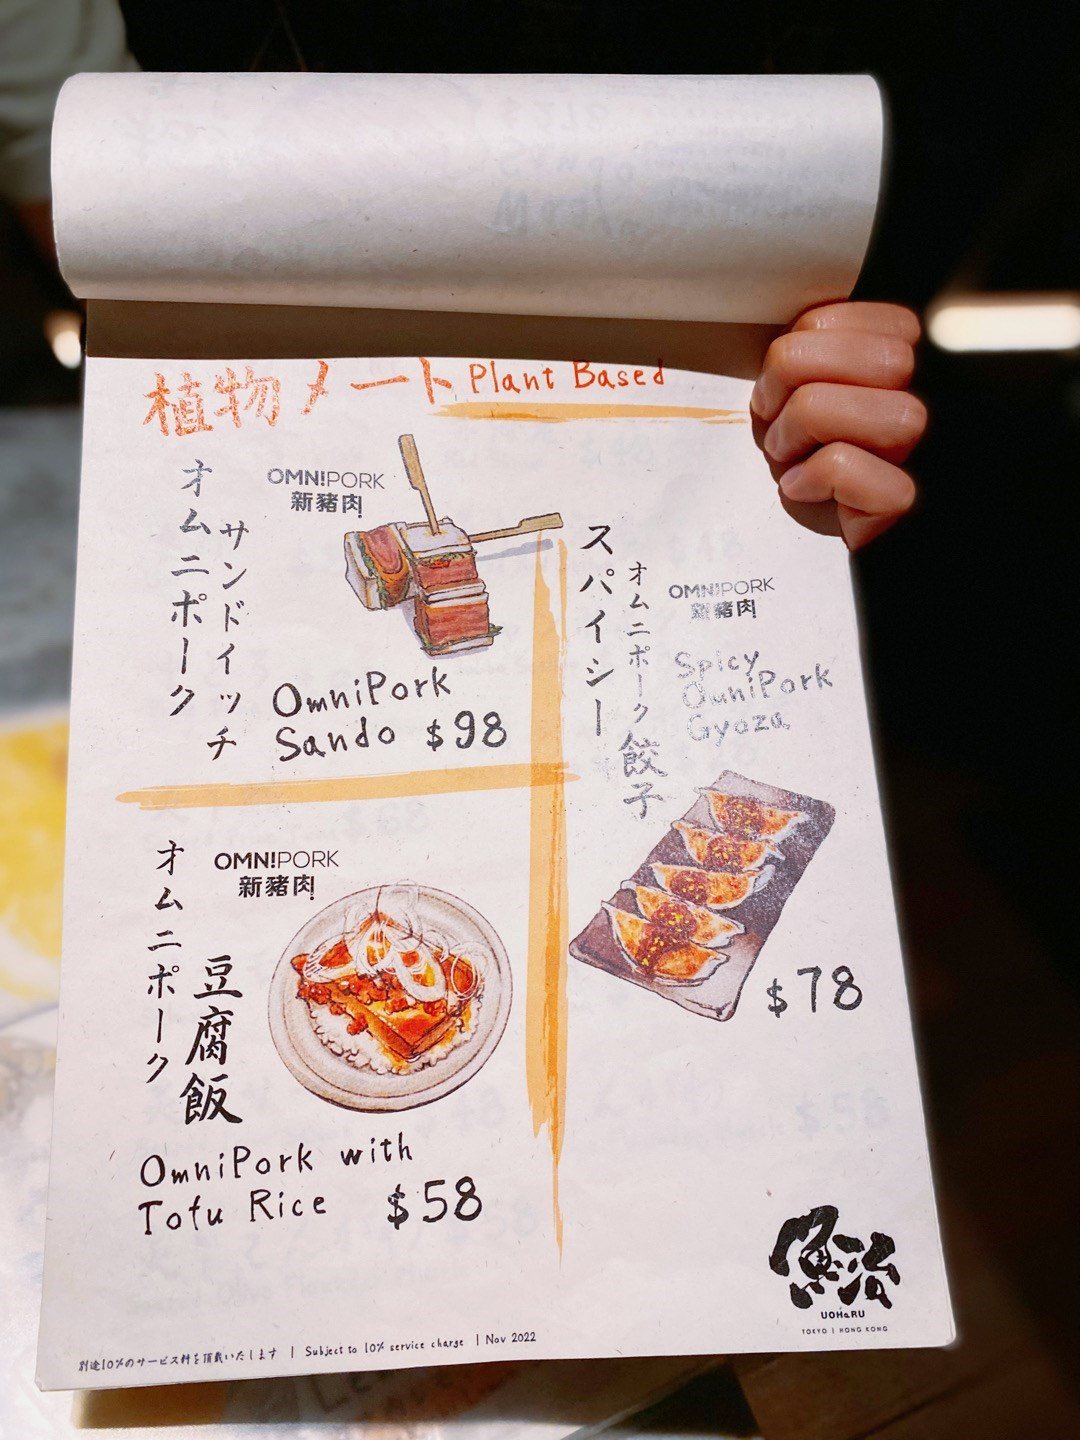 植物メート Plant Based
オムニポーク
サンドイッチ
OMN!PORK
新豬肉
OmniPork
Sando $98
スパイシー
オムニポーク餃子
OMN!PORK
新豬肉
Spicy
OuniPork
Gyoza
$78
オムニポーク
豆腐飯
OMN!PORK
新豬肉
OmniPork with
Tofu Rice $58
魚治
UOHaRU
TOKYO | HONG KONG
別途10%のサービス料を頂戴いたします | Subject to 10% service charge | Nov 2022